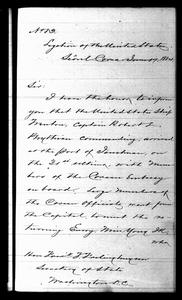 No 13.
Legation of the United States
Seoul Corea June 14 1884
Sir:
I have the honor to inform
you that the United States Ship
Trenton, Captain Robert L.
Phythian commanding, arrived
at the port of
the 31st ultimo, with Mem-
bers of the Corean Embassy
on board. Large numbers of
the Corean Officials went from
the Capital to meet the re-
turning Envoy Min Yong Ik
who
Hon Fred'k T Frelinghuysen
Secretary of State
Washington D.C.